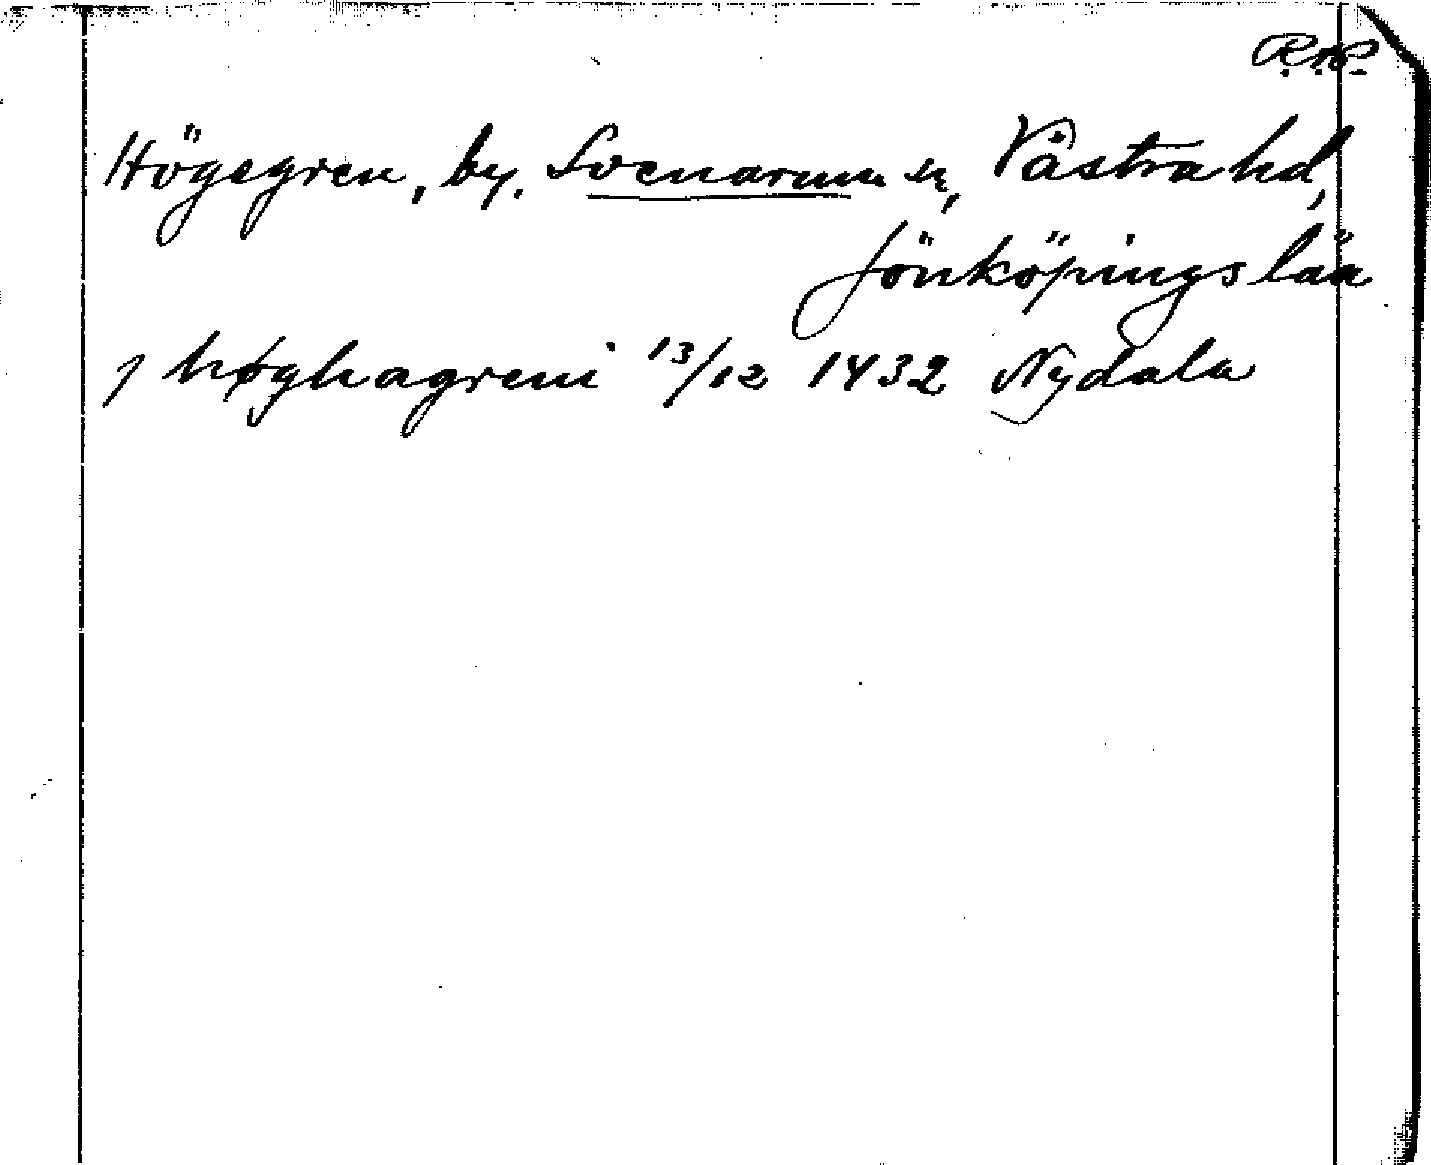 R.A.P.
Högegren, by. Svenarum sn, Västra hd,
Jönköpings län
j høghagreni 13/12 1432 Nydala